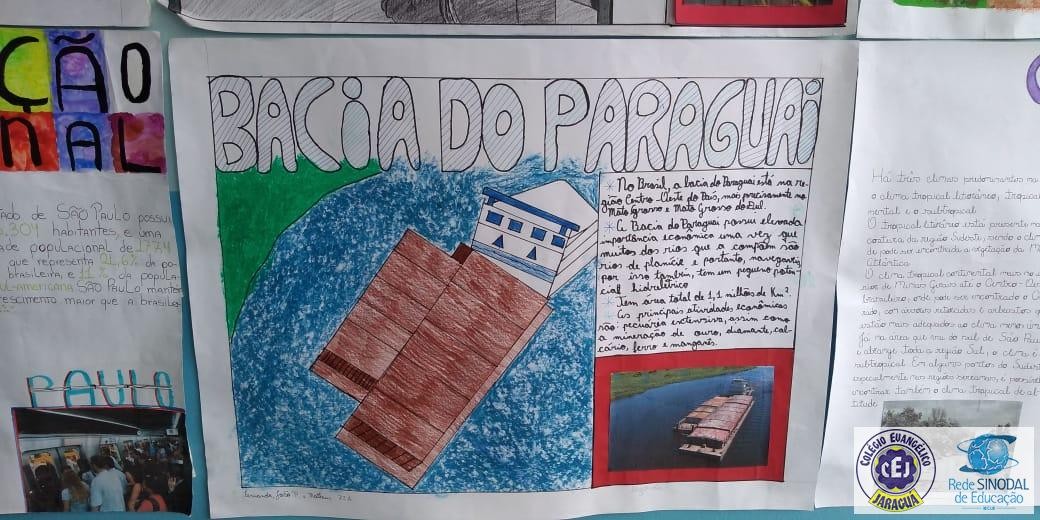 ÇÃO
NAL
ADO DE SÃO PAULO POSSUI
,304 HABITANTES, E UMA
DE POPULACIONAL DE 177,4
QUE REPRESENTA 21,6% DA PO-
BRASILEIRA, E 11% DA POPULA-
SUL-AMERICANA SÃO PAULO MANTÉM
RESCIMENTO MAIOR QUE A BRASILEI-
PAULO
BACIA DO PARAGUAI
* No Brasil, a bacia do Paraguai está na re-
gião Centro-Oeste do País, mas precisamente no
Mato Grosso e Mato Grosso do Sul.
* A Bacia do Paraguai possui elevada
importância econômica uma vez que
muitos dos rios que a compõem são
rios de planície e portanto, navegáveis,
por isso também, tem um pequeno poten
cial hidrelétrico
* Tem área total de 1,1 milhões de Km².
* As principais atividades econômicas
são: pecuária extensiva, assim como
a mineração de ouro, diamante, cal-
cário, ferro e manganês.
Fernanda, João P. e Matheus 72A
Há três climas predominantes na
o clima tropical litorâneo, tropical
mental e o subtropical
O tropical litorâneo está presente na
costura da região Sudeste, sendo o clima
de pode ser encontrada a vegetação da M
Atlântica
O clima tropical continental mais no i
rior de Minas Gerais até o Centro-Oes
brasileiro, onde pode ser encontrado o C
do, com árvores retorcidas e arbustos q
estão mais adequados ao clima menos úm
Já na área que vai do sul de São Paul
e abrange toda a região Sul, o clima é
subtropical. Em alguns pontos do Sudeste
especialmente nas regiões serranas, é possível
encontrar também o clima tropical de al
titude
COLÉGIO EVANGÉLICO
CEJ
JARAGUÁ
Rede SINODAL
de Educação
IECLB